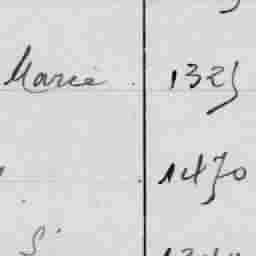 Marie 1325
1470